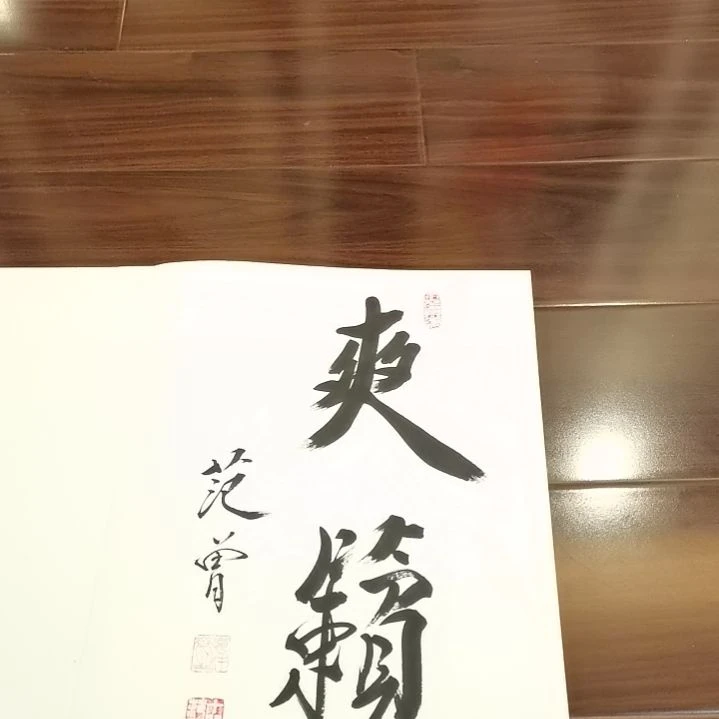 爽
籟
范曾